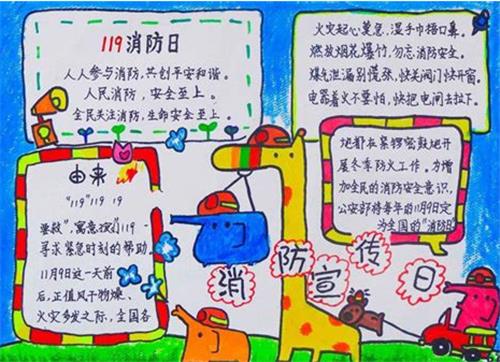 119消防日
人人参与消防，共创平安和谐。
人民消防，安全至上。
全民关注消防，生命安全至上。
火灾起心莫急，湿手巾捂口鼻。
燃放烟花爆竹，勿忘消防安全。
煤气泄漏别慌张，快关阀门快开窗。
电器着火不要怕，快把电闸去拉下。
由来
"119" 119 19
要救"，寓意我们119
寻求紧急时刻的帮助。
11月9日这一天前
后，正值风干物燥、
火灾多发之际，全国各
地都在紧锣密鼓地开
展冬季防火工作。为增
加全民的消防安全意识，
公安部将每年的11月9日定
为全国的"消防日
消防宣传日